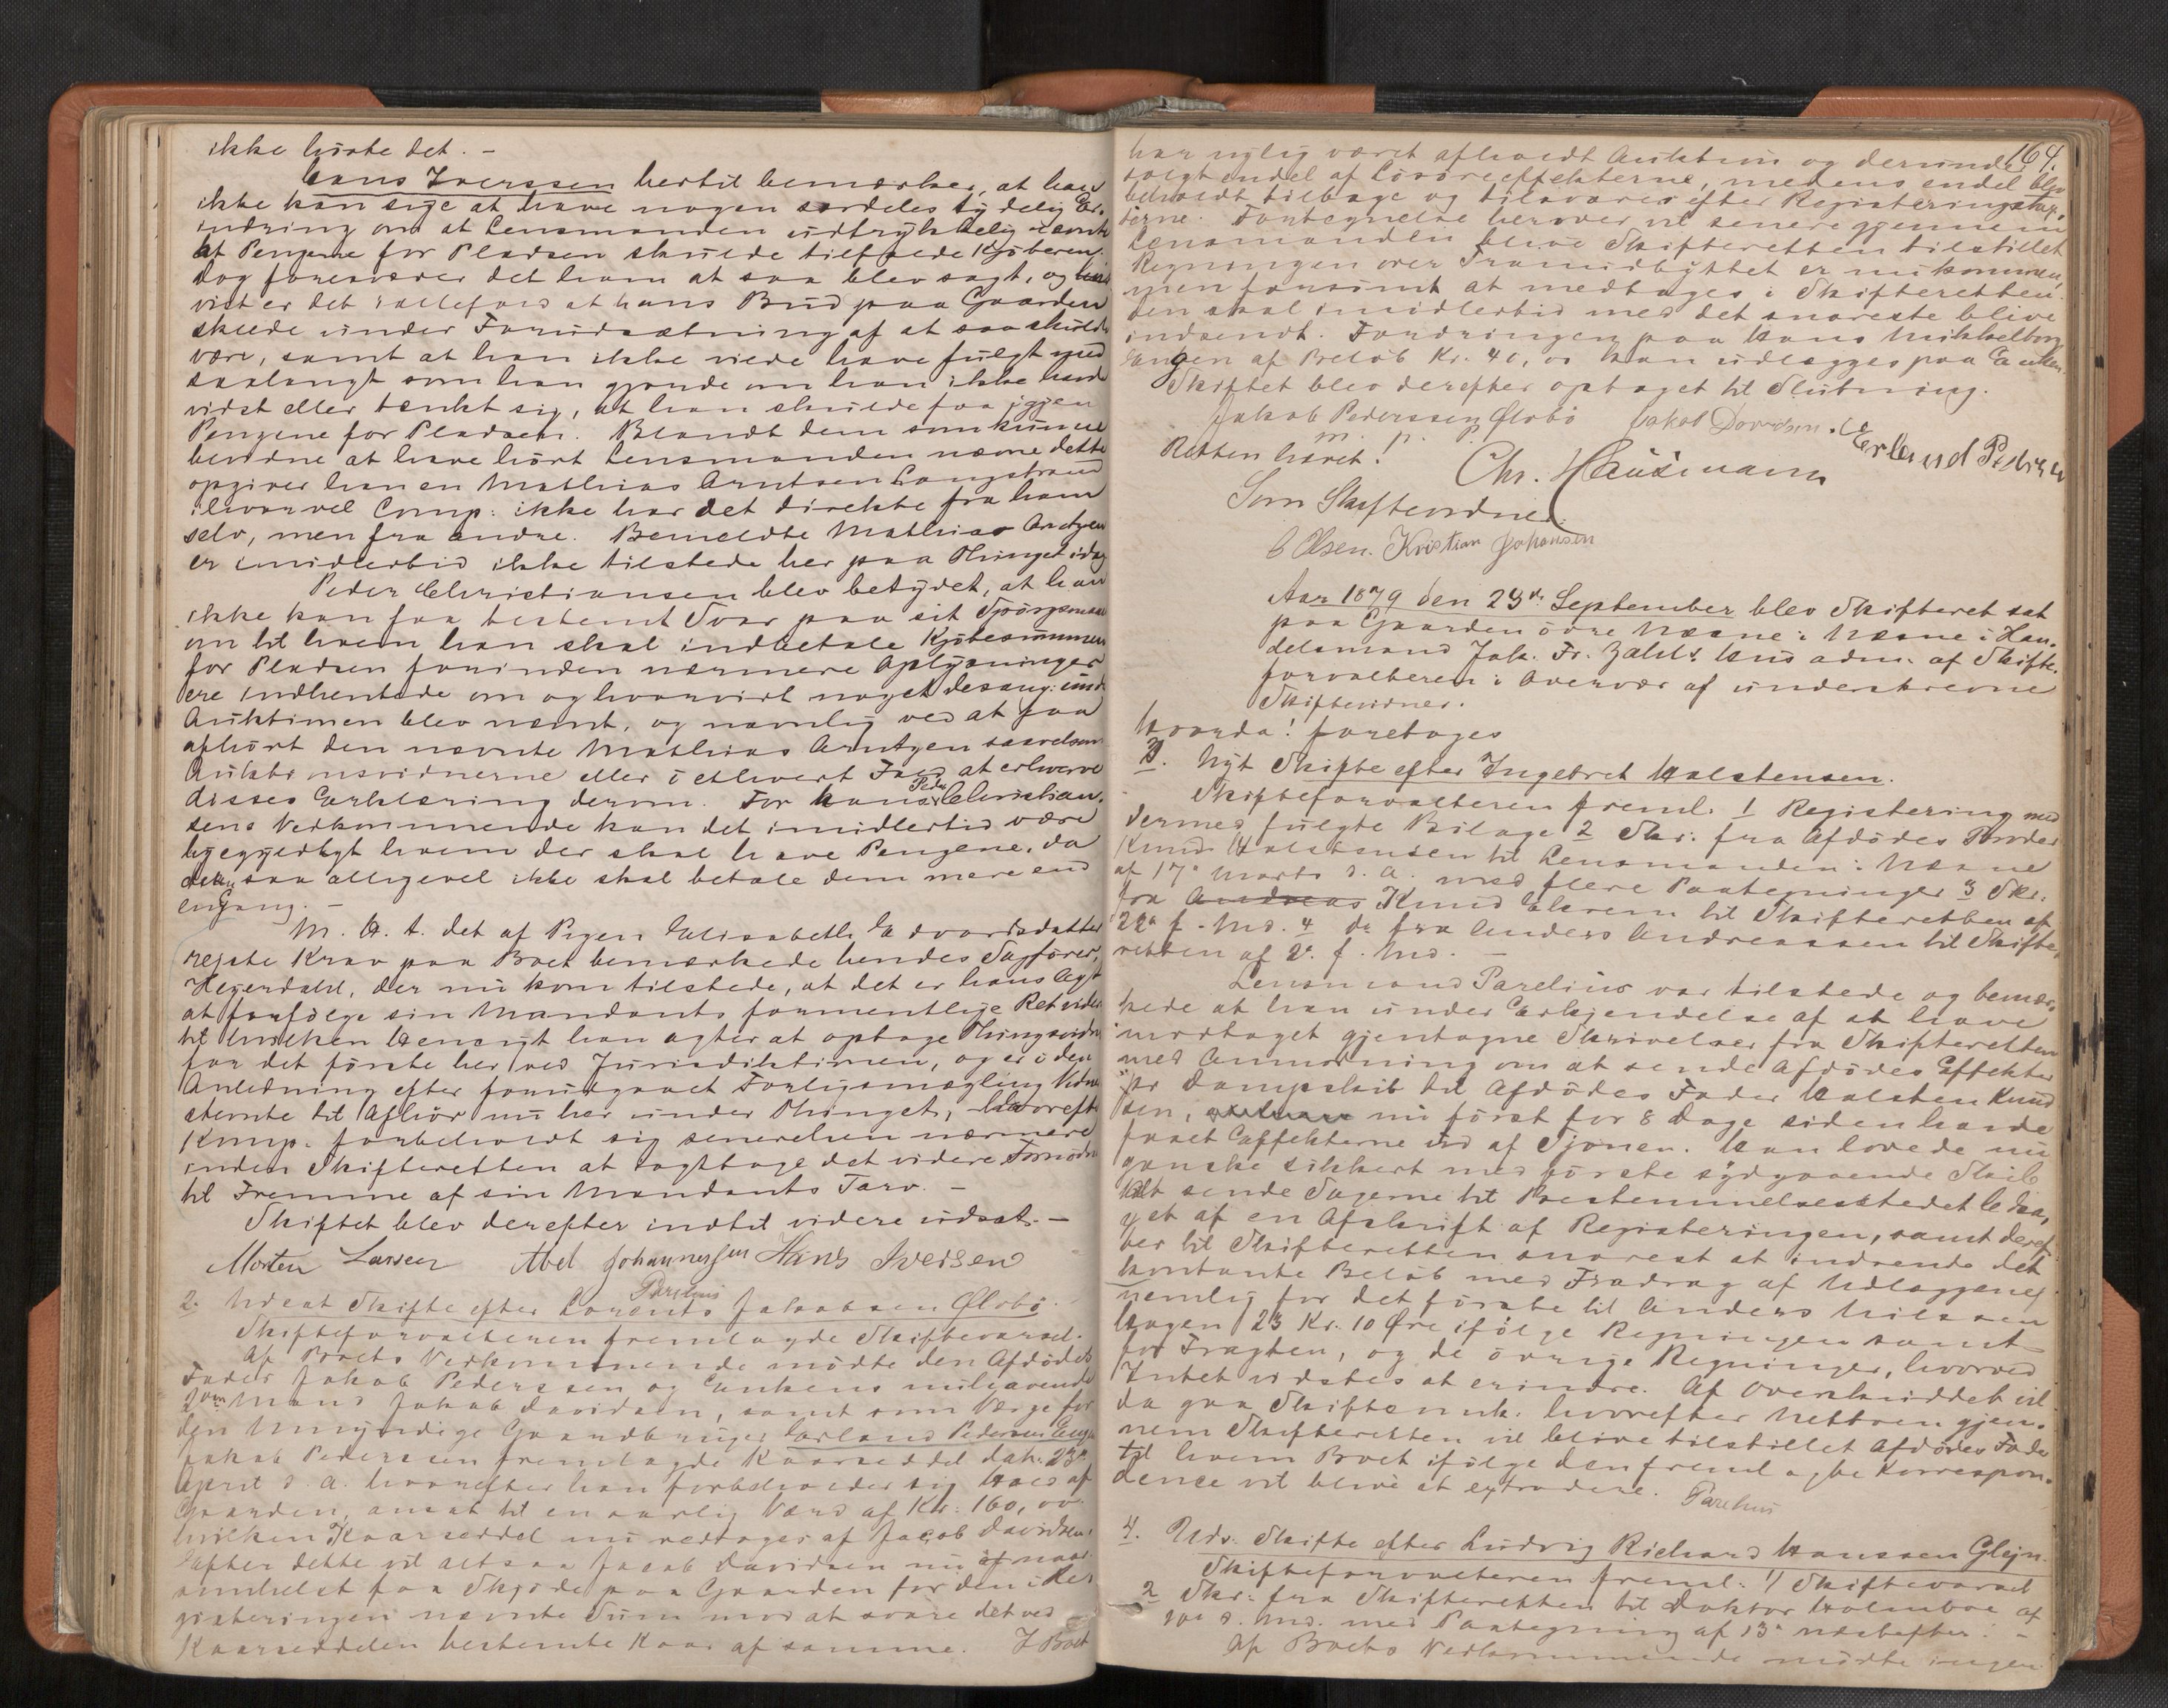 ikke hörte det. –
Hans Iverssen hertil bemærker, at han
ikke kan sige at have nogen særdeles tydelig Er-
indring om at Lensmanden udtrykkelig nævnte
at Pengene for Pladsen skulde tilfalde Kjöberen.
Dog forekommer det ham at saa blev sagt, og
vist er det ialfald at hans Bud paa Gaarden
skede under Forudsætning af at saa skulde
være, samt at han ikke vilde have fulgt med
saalangt som han gjorde om han ikke havde
vidst eller tænkt sig, at han skulde faa igjen
Pengene for Pladsen. Blandt dem som kunne
bevidne at have hört Lensmanden nævne dette
opgiver han en Mathias Arntsen Langstrand
ihvorvel Comp: ikke har det direkte fra ham
selv, men fra andre. Bemeldte Mathias Arntzen
er imidlertid ikke tilstede her paa Thinget idag
Peder Christiansen blev betydet, at han
ikke kan faa bestemt Svar paa sit Spörgsmaal
om til hvem han skal indbetale Kjöbesummen
for Pladsen forinden nærmere Oplysninger
ere indhentede om og hvorvidt noget desang: und
Auktionen blev nævnt, og navnlig ved at faa
afhört den nævnte Mathias Arntzen saavelsom
Auktionsvidnerne eller i ethvert Fald at erhverve
disses Erklæring derom. For Peder Christian-
sens Vedkommende kan det imidlertid være
ligegyldigt hvem der skal have Pengene, da
han saa alligevel ikke skal betale dem mere end
engang. –
M. H. t. det af Pigen Elisabeth Edvardsdatter
rejste Krav paa Boet bemærkede hendes Sagförer,
Heyerdahl, der nu kom tilstede, at det er hans Agt
at forfölge sin Mandants formentlige Ret videre
til hvilken Hensigt han agter at optage Thingsvidne
for det förste her ved Jurisdiktionen, og er i den
Anledning efter forudgaaet Forligsmægling Vidne
stevnte til Afhör nu her under Thinget, hvorefter
Komp. forbeholdt sig senerehen nærmere
inden Skifteretten at iagttage det videre Fornödne
til Fremme af sin Mandants Tarv. –
Skiftet blev derefter indtil videre udsat. –
Morten Larsen Abel Johannessen Hans Iversen
Parelius
2. Udsat Skifte efter Lorents Jakobsen Ølobö.
Skifteforvalteren fremlagde Skiftevarsel.
Af Boets Vedkommende mödte den Afdödes
Fader Jakob Pederssen og Enkens nulevende
Mand Jakob Davidsen, samt som Værge for
den Umyndige Gaardbruger Erland Pedersen
Jakob Pederssen fremlagde Kaarseddel dat. 23de
April d. A. hvorefter han forbeholder sig Hold af
Gaarden, ansat til en aarlig Værd af Kr. 160,00.
hvilken Kaarseddel nu vedtages af Jacob Davidsen.
Efter dette vil altsaa Jacob Davidsen nu
somhelst faa Skjöde paa Gaarden for den i Re-
gisteringen nævnte Sum mod at svare det ved
Kaarseddelen bestemte Kaar af samme. I Boet
164.
har nylig været afholdt Auktion og derunder
solgt endel af Lösöreeffekterne, medens endel blev
beholdt tilbage og tilsvares efter Registeringstax-
terne. Fortegnelse herover vil senere gjennem
Lensmanden blive Skifteretten tilstillet
Regningen over Framudbyttet er nu kommen,
men forsömt at medtages i Skifteretten.
den skal imidlertid med det snareste blive
indsendt. Fordringen paa Hans Mikkelborg
Engen af Belöb Kr. 40, vs kan udlægges paa Enken
Skiftet blev derefter optaget til Slutning.
Jakob Pederssen Ølobö Jakob Davidsen. Erland Peders
m. p. P
Retten hævet! Chr. Hausmann
Som Skiftevidner:
O Olsen. Kristian Johansen
Aar 1879 den 23de September blev Skifteret sat
paa Gaarden övre Næsne i Næsne i Han-
delsmand Joh. Fr. Zahls Hus adm. af Skifte-
forvalteren i Overvær af underskrevne
Skiftevidner.
Hvorda! foretoges
3. Nyt Skifte efter Ingebret Halstensen.
Skifteforvalteren freml. 1 Registering med
dermed fulgte Bilage 2 Skr: fra Afdödes Broder
Knud Halstensen til Lensmanden i Næsne
af 17de Marts d. A. med flere Paategninger 3 Skr.
fra Andreas Knud til Skifteretten af
22de f. Md. 4 do fra Anders Andreassen til Skifte-
retten af 2. f. Md. –
Lensmand Parelius var tilstede og bemær-
kede at han under Erkjendelse af at have
modtaget gjentagne Skrivelser fra Skifteretten
med Anmodning om at sende Afdödes Effekter
pr Dampskib til Afdödes Fader Halsten Knud
sen, nu först for 8 Dage siden havde
faaet Effekterne ind af Sjonen. Han lovede nu
ganske sikkert med förste sydgaaende Skib
at sende Sagerne til Bestemmelsesstedet ledsa-
get af en Afskrift af Registeringen, samt deref-
ter til Skifteretten snarest at indsende det
kontante Belöb med Fradrag af Udlæggene
nemlig for det förste til Anders Nilssen
Hagen 23 Kr. 10 Øre ifölge Regningen samt
for Fragten, og de övrige Regninger, hvorved
Intet vidstes at erindre. Af Overskuddet vil
da gaa Skifteomk. hvorefter Nettoen gjen-
nem Skifteretten vil blive tilstillet Afdödes Fader
til hvem Boet ifölge den fremlagte Korrespon-
dence vil blive at extradere. Parelius
4. Uds. Skifte efter Ludvig Richard Hanssen Glejn.
Skifteforvalteren freml: 1/ Skiftevarsel
2 Skr: fra Skifteretten til Doktor Holmboe af
10de d. Md. med Paategning af 13de næstefter. –
Af Boets Vedkommende mödte ingen